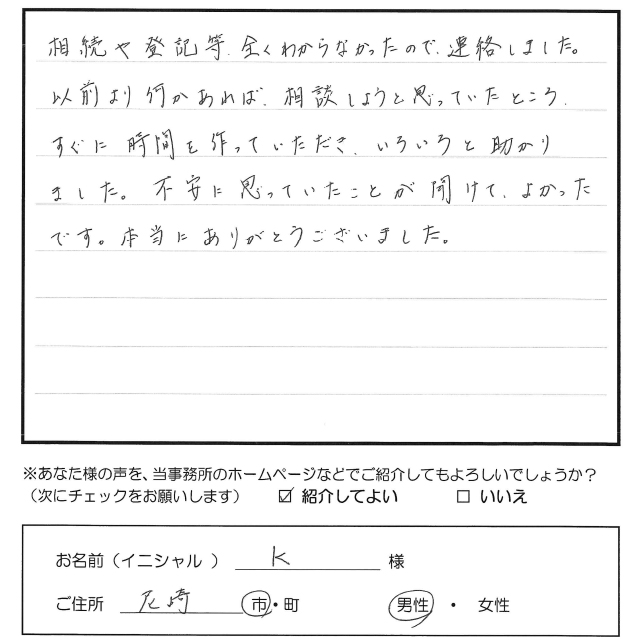 相続や登記等、全くわからなかったので、連絡しました。
以前より何かあれば、相談しようと思っていたところ、
すぐに時間を作っていただき、いろいろと助かり
ました。不安に思っていたことが聞けて、よかった
です。本当にありがとうございました。
※あなた様の声を、当事務所のホームページなどでご紹介してもよろしいでしょうか？
（次にチェックをお願いします） ☑ 紹介してよい □ いいえ
お名前（イニシャル ） K 様
ご住所 尼崎 市・町 男性 ・ 女性